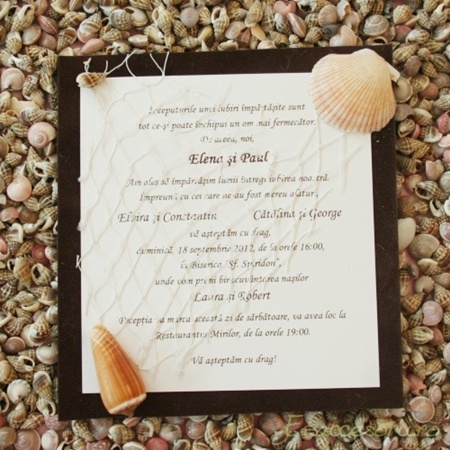 Începuturile unei iubiri împărtășite sunt
tot ce-și poate închipui un om mai fermecător.
De aceea, noi,
Elena și Paul
Am ales să împărtășim lumii întregi iubirea noastră.
Împreună cu cei care ne-au fost mereu alături,
Elvira și Constantin Cătălina și George
vă așteptăm cu drag,
duminică, 18 septembrie 2012, de la orele 16:00,
la Biserica "Sf. Spiridon",
unde vom primi binecuvântarea nașilor
Laura și Robert
Recepția va marca această zi de sărbătoare, va avea loc la
Restaurantul Mirilor, de la orele 19:00.
Vă așteptăm cu drag!